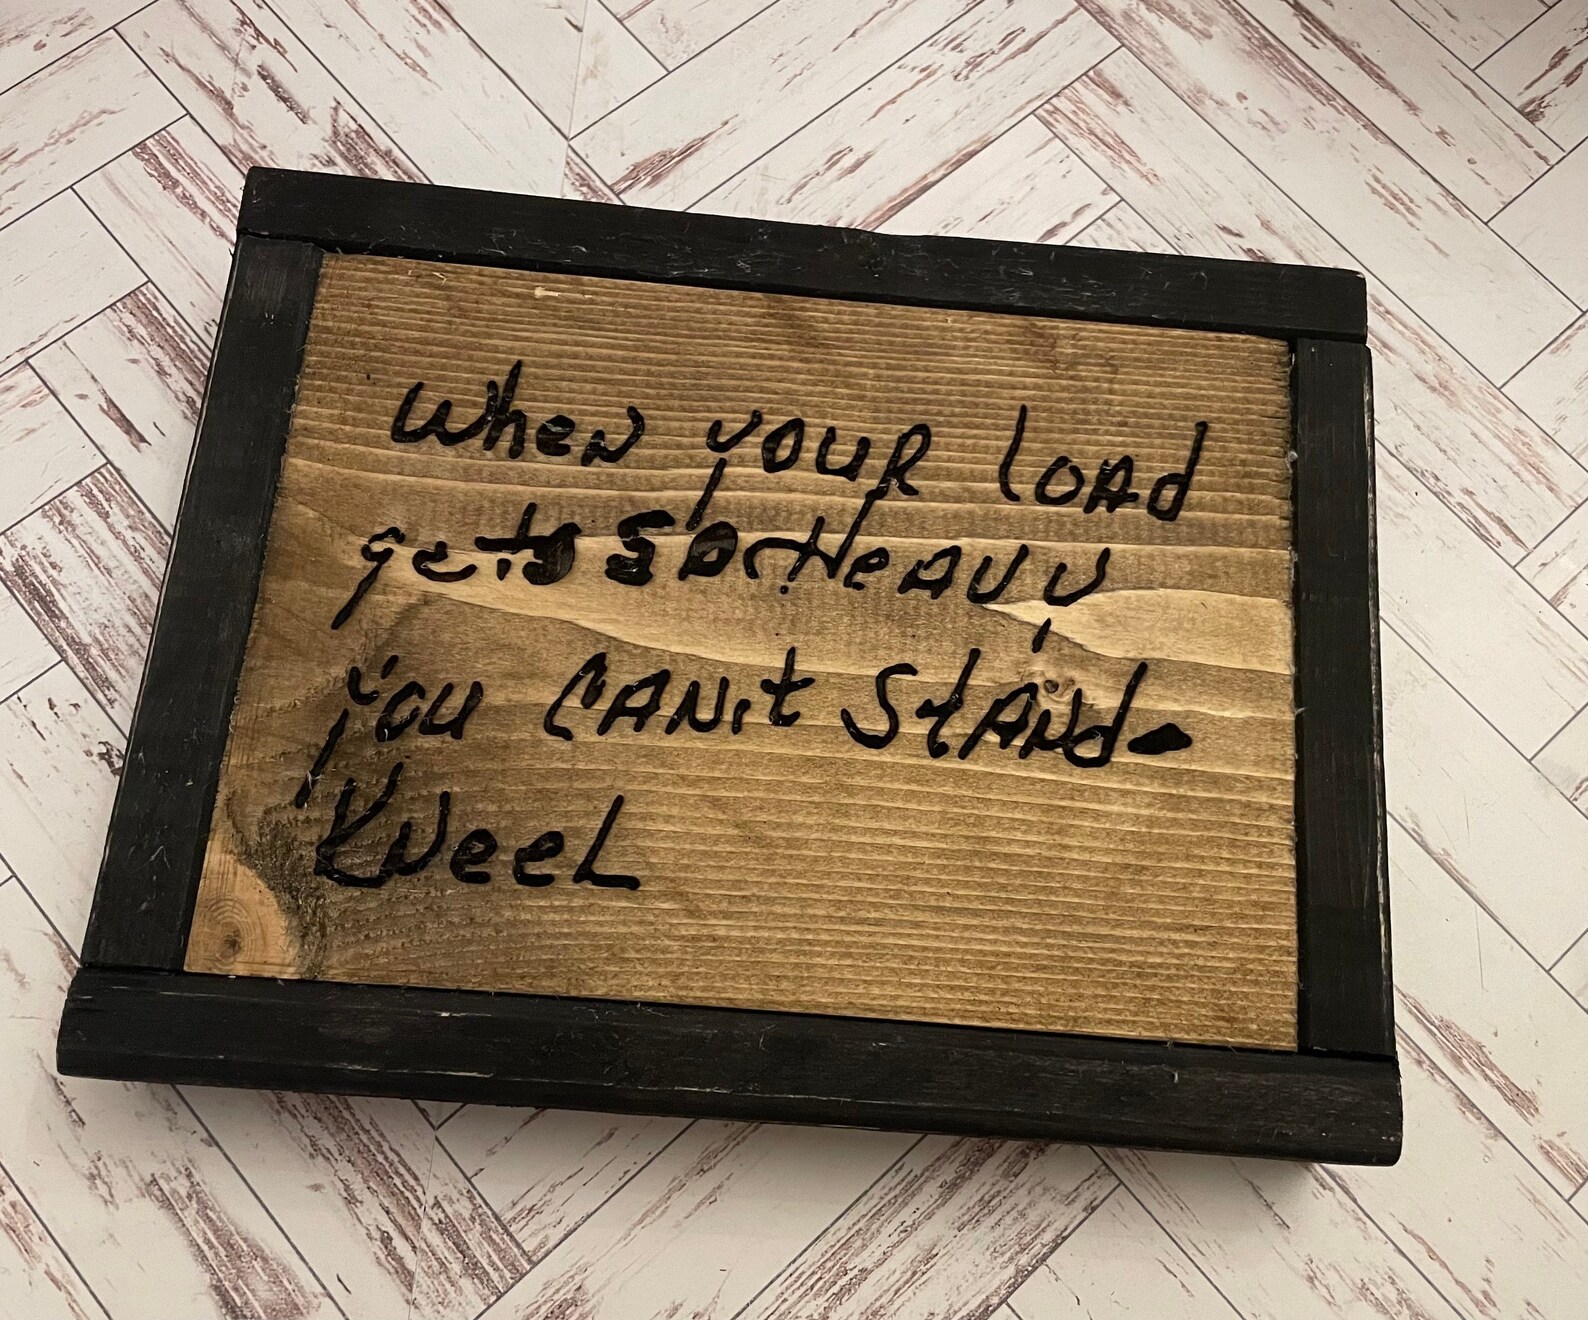 When your load
gets so Heavy
you can't stand-
Kneel